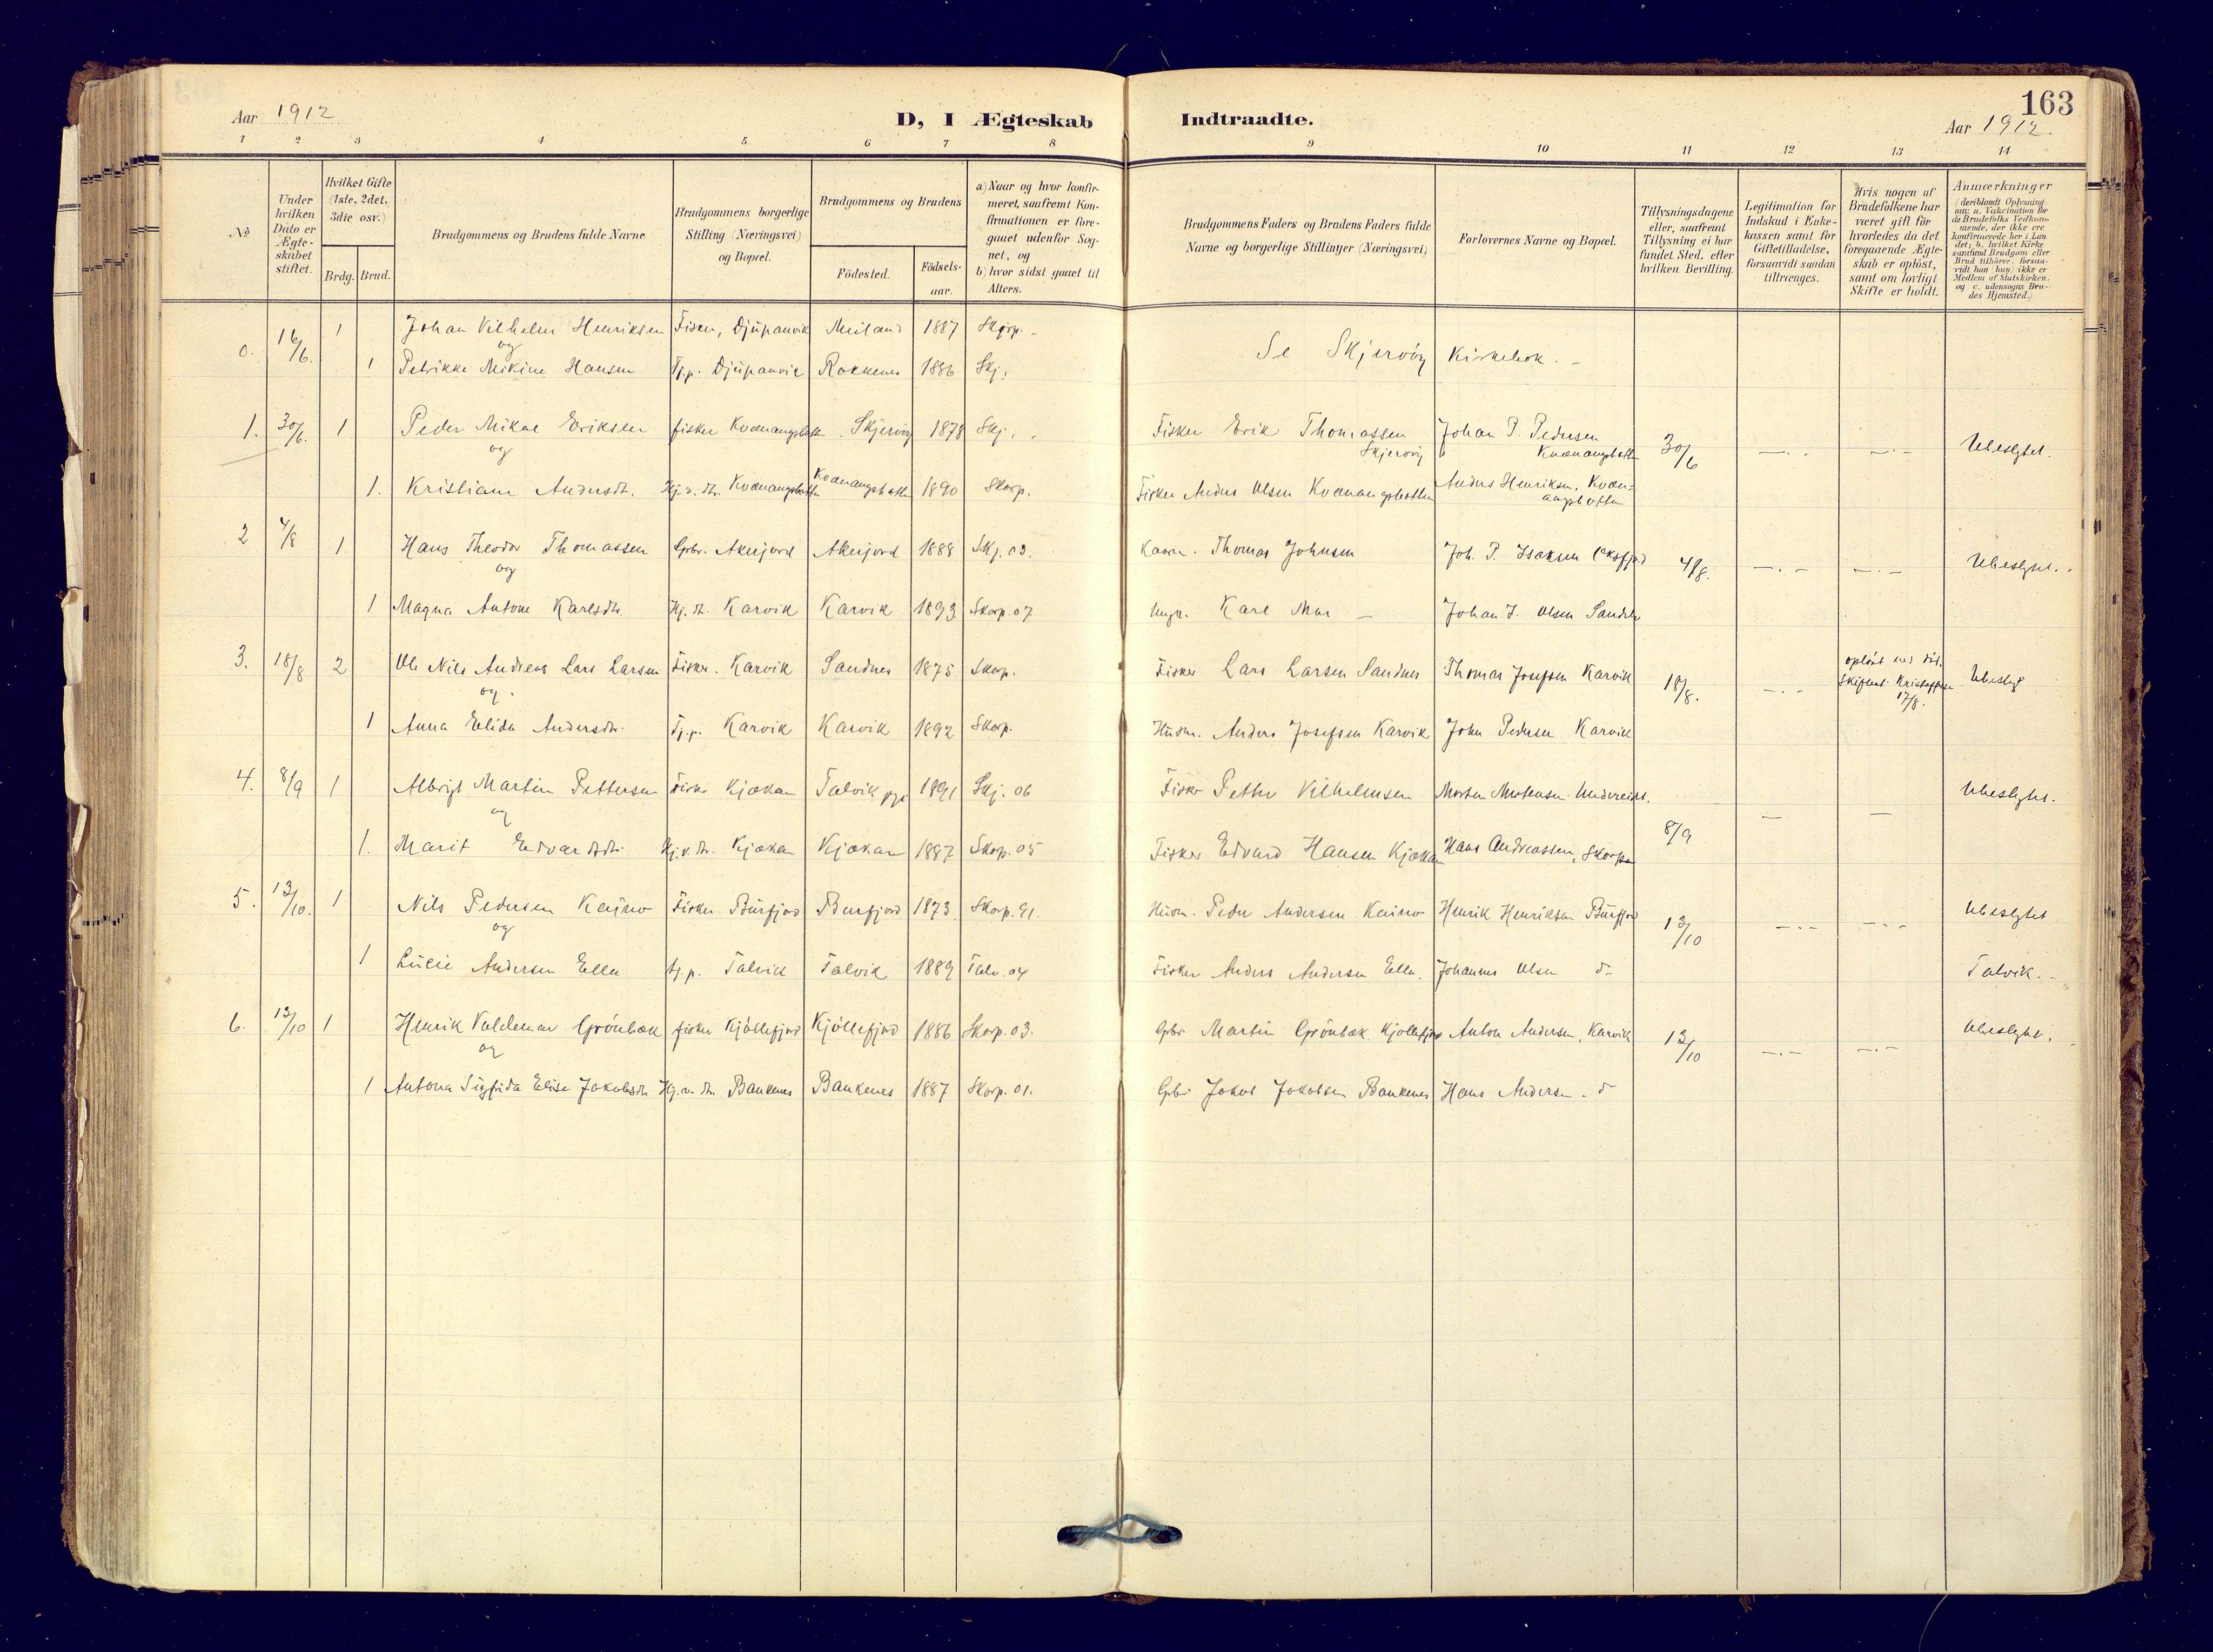 163
Aar 1912
D, I Ægteskab Indtraadte.
Aar 1912.
1 2 3 4 5 6 7 8 9 10 11 12 13 14
№
Under hvilken Dato er Ægte-skabet stiftet.
Hvilket Gifte (1ste, 2det, 3die osv.)
Brdg. Brud.
Brudgommens og Brudens fulde Navne
Brudgommens borgerlige Stilling (Næringsvei) og Bopæl.
Brudgommens og Brudens
Födested.
Födsels-aar.
a) Naar og hvor konfir-meret, saafremt Kon-firmationen er fore-gaaet udenfor Sog-net, og
b) hvor sidst gaaet til Alters.
Brudgommens Faders og Brudens Faders fulde Navne og borgerlige Stillinger (Næringsvei)
Forlovernes Navne og Bopæl.
Tillysningsdagene eller, saafremt Tillysning ei har fundet Sted, efter hvilken Bevilling.
Legitimation for Indskud i Enke-kassen samt for Giftetilladelse, forsaavidt saadan tiltrænges.
Hvis nogen af Brudefolkene har været gift för hvorledes da det foregaaende Ægte-skab er oplöst, samt om lovligt Skifte er holdt.
Anmærkninger (deriblandt Oplysning om: a. Vakcination for de Brudefolks Vedkom-mende, der ikke ere konfirmerede her i Lan-det; b. hvilket Kirke-samfund Brudgom eller Brud tilhörer, forsaa-vidt han (hun) ikke er Medlem af Statskirken, og c. udensogns Bru-des Hjemsted.)
0. 16/6. 1 Johan Vilhelm Henriksen Fisker, Djupanvik Meiland 1887 Skjerp.
og
Se Skjervöy Kirkebok. -
1 Petrikke Mikine Hansen Tj.p. Djupanvik Rakkenes 1886 Skj.
1. 30/6. 1 Peder Mikal Eriksen fisker Kvænangsbotn Skjervöy 1878 Skj. Fisker Erik Thomassen Skjervöy Johan P. Pedersen Kvænangsbotn 30/6 -.- -.- Ubeslgtet.
og
1. Kristiane Andersdt. Hj.v.dt. Kvænangsbotn Kvænangsbotn 1890 Skorp. Fisker Anders Olsen Kvænangsbotn Anders Henriksen, Kvæn-angsbotten
2 4/8 1 Hans Theodor Thomassen Gbr. Akerjord Akerjord 1888 Skj. 03. Thomas Johnsen Joh. P. Isaksen Oksfjord 4/8. -.- -.- Ubeslgtet.
og
1 Magna Antone Karlsdtr. Hj.dt. Karvik Karvik 1893 Skorp. 07 Ungk. Karl Johan J. Olsen
3. 18/8 2 Ole Nils Andreas Lars Larsen Fisker. Karvik Sandnes 1875 Skorp. Fisker Lars Larsen Sandnes Thomas Josefsen Karvik 18/8. -.- oplöst ved död. 17/8. Ubeslgt
og.
1 Anna Elida Andersdtr. Tj.p. Karvik Karvik 1892 Skorp. Husm. Anders Josefsen Karvik John Pedersen Karvik
4. 8/9 1 Albrigt Martin Pettersen Fisker Kjækan Talvik pgj 1891 Skj. 06 Fisker Petter Vilhelmsen Morten Mortensen 8/9 - - Ubeslgtet.
og
1. Marit Edvardsdtr. Hj.v.dt. Kjækan Kjækan 1887 Skorp. 05 Fisker Edvard Hansen Kjækan Hans Andreassen, Skorpen
5. 13/10. 1 Nils Pedersen Kaino Fisker Burfjord Burfjord 1873 Skorp. 91. Husm. Peder Andersen Kaino Henrik Henriksen Burfjord 13/10 -.- -.- Ubeslgtet
og
1 Lucie Andersen Ella tj.p. Talvik Talvik 1889 Talv. 04 Fisker Anders Andersen Ella. Johannes Olsen d- Talvik.-
6. 13/10 1 Henrik Valdemar Grönbæk fisker Kjöllefjord Kjöllefjord 1886 Skorp. 03. Gbr Martin Grönbæk Kjöllefjord Anton Andersen, Karvik 13/10 -.- -.- Ubeslgtet.
og
1 Antona Sigfrida Elise Jakobsdtr Hj.v.dt. Bankenes Bankenes 1887 Skorp. 01. Gbr Jakob Jakobsen Bankenes Hans Andersen. d